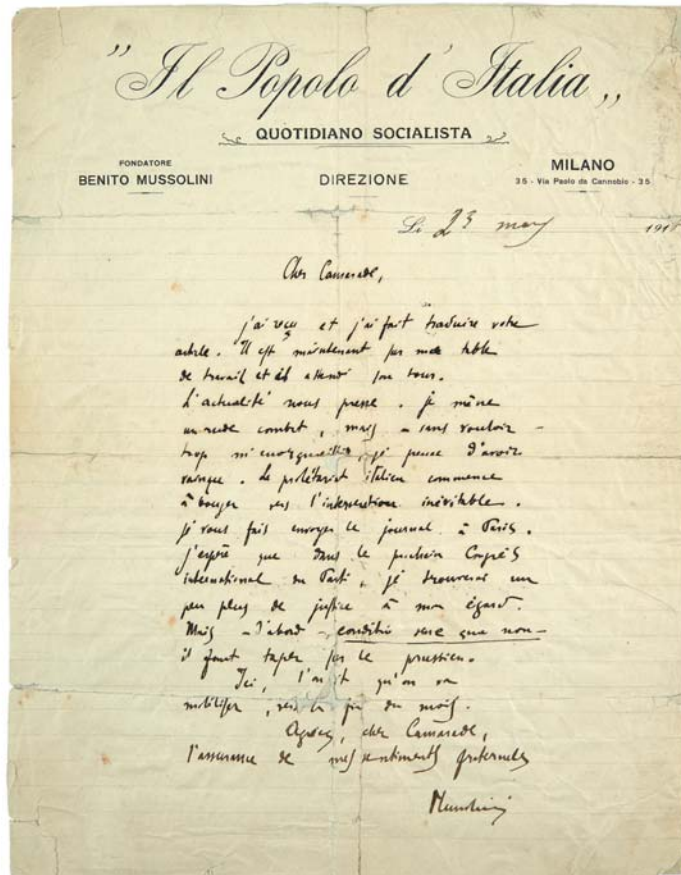 "Il Popolo d'Italia„
QUOTIDIANO SOCIALISTA
FONDATORE
BENITO MUSSOLINI
DIREZIONE
MILANO
35 - Via Paolo da Cannobio - 35
Li 23 mars 191
Cher Camarade,
j'ai reçu et j'ai fait traduire votre
article. Il est maintenant sur ma table
de travail et il attend son tour.
L'actualité nous presse. je mène
un rude combat, mais – sans vouloir –
trop m'enorgueillir, je pense d'avoir
vaincu. Le prolétariat italien commence
à bouger vers l'intervention inévitable.
je vous fais envoyer le journal à Paris.
j'espère que dans le prochain Congrès
international du Parti, je trouverai un
peu plus de justice à mon égard.
Mais – d'abord – conditio sine qua non –
il faut taper sur le prussien.
Ici, l'on dit qu'on va
mobiliser, vers la fin du mois.
Agréez, cher Camarade,
l'assurance de mes sentiments fraternels
Mussolini